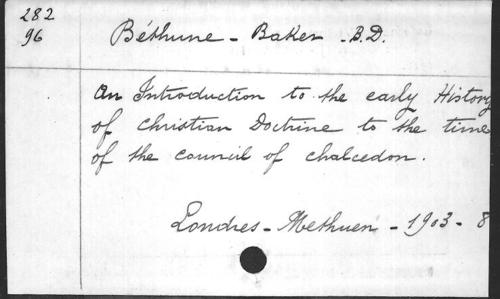 282
96
Béthune - Baker. B.D.
An Introduction to the early History
of Christian Doctrine to the time
of the council of chalcedon.
Londres - Methuen - 1903 - 8